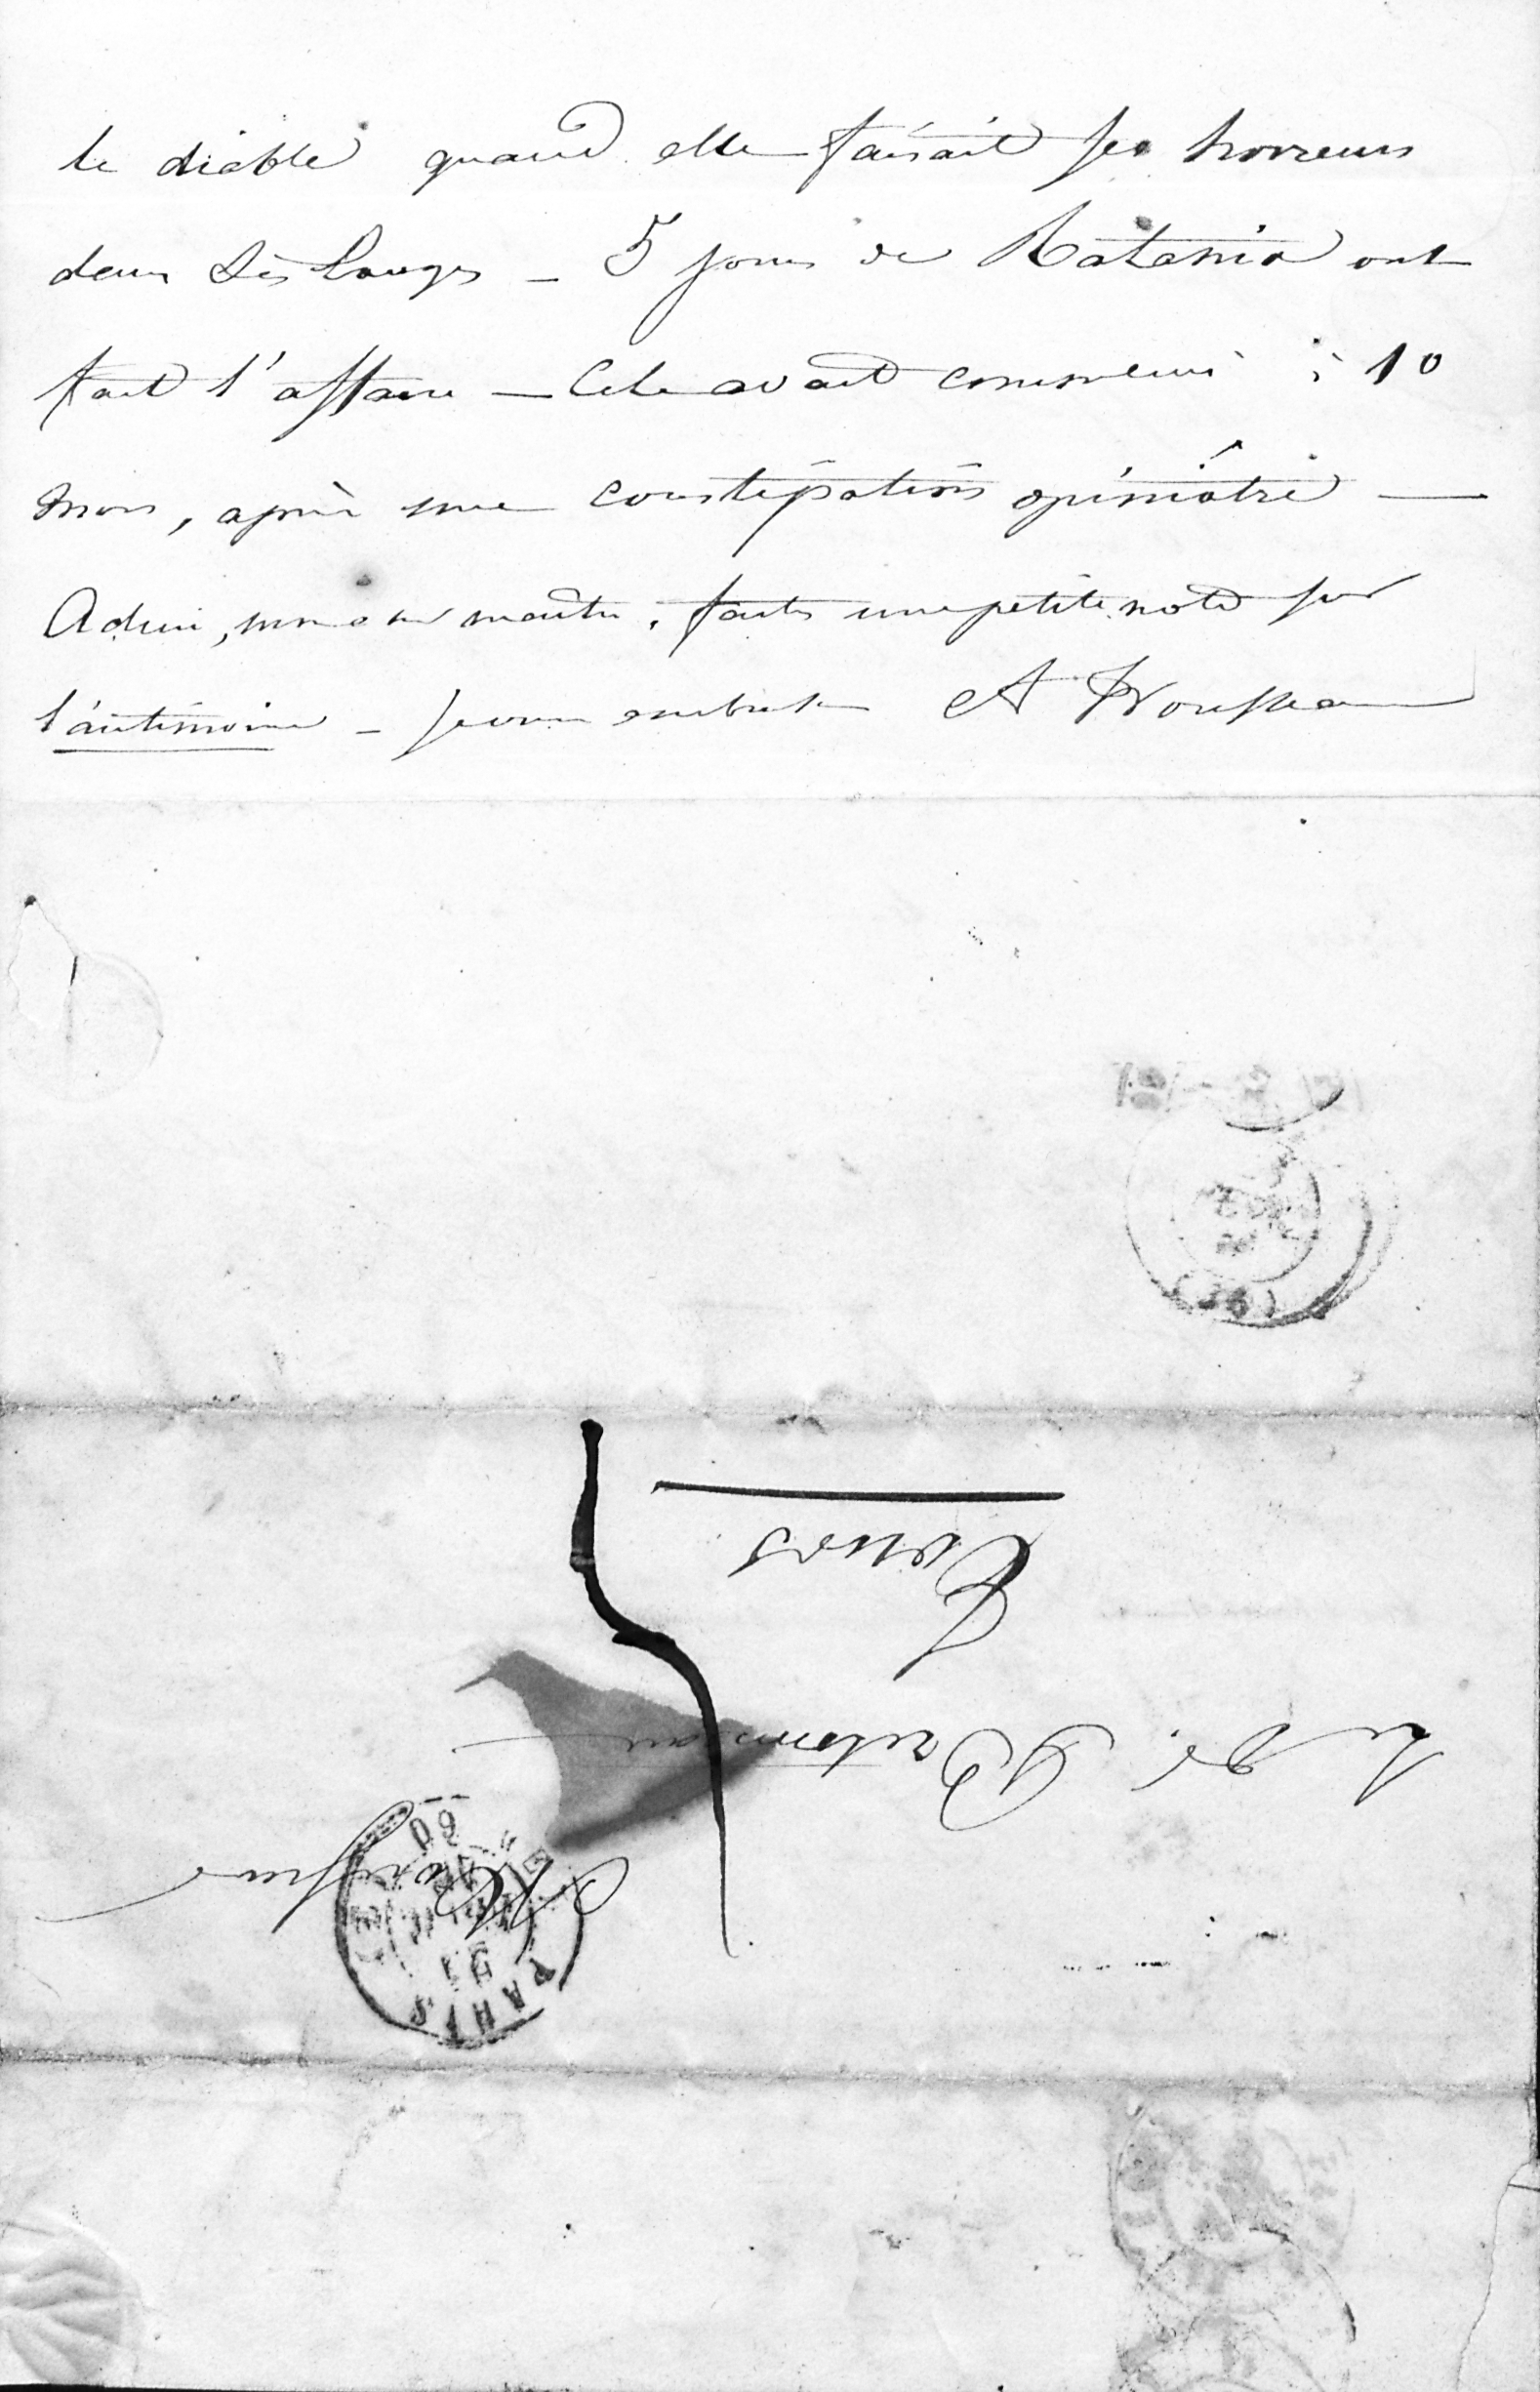 le diable quand elle faisait ses horreurs
dans ses langes – 5 jours de Ratania ont
fait l'affaire — Cela avait commencé à 10
mois, après une constipation opiniâtre —
Adieu, mon cher maître, faites une petite note sur
l'antimoine – je vous embrasse A Trousseau
Monsieur
Le Dr. Bretonneau
Tours
PARIS
60